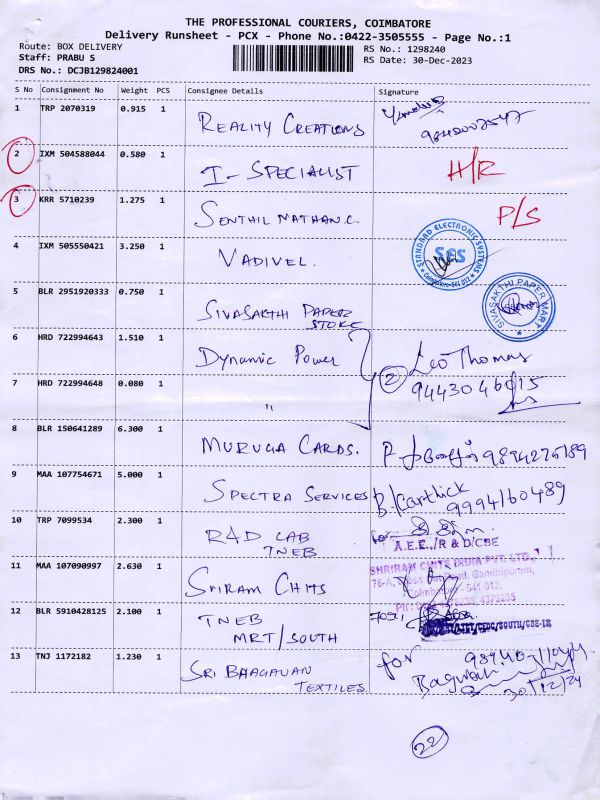 THE PROFESSIONAL COURIERS, COIMBATORE
Delivery Runsheet - PCX - Phone No.:0422-3505555 - Page No.:1
Route: BOX DELIVERY
RS No.: 1298240
Staff: PRABU S
RS Date: 30-Dec-2023
DRS No.: DCJB129824001
S No Consignment No Weight PCS Consignee Details Signature
1 TRP 2070319 0.915 1 REALITY CREATIONS
2 IXM 504588044 0.580 1 I-SPECIALIST H/R
3 KRR 5710239 1.275 1 SENTHIL NATHAN.C. P/S
4 IXM 505550421 3.250 1 VADIVEL.
STANDARD ELECTRONIC SYSTEMS
SES
Coimbatore-641 012.
5 BLR 2951920333 0.750 1 SIVASAKTHI PAPER STORE
SIVASAKTHI PAPER MART
6 HRD 722994643 1.510 1 Dynamic Power
2 Leo Thomas
7 HRD 722994648 0.080 1 "
8 BLR 150641289 6.300 1 MURUGA CARDS.
9 MAA 107754671 5.000 1 SPECTRA SERVICES B. Karthick
9994160489
10 TRP 7099534 2.300 1 R&D LAB
TNEB
for
A.E.E./R & D/CBE
11 MAA 107090997 2.630 1 SRIRAM CHITS
SHRIRAM CHITS INDIA PVT. LTD.,
Gandhipuram,
Coimbatore - 641 012.
12 BLR 5910428125 2.100 1 TNEB
MRT/SOUTH
13 TNJ 1172182 1.230 1 SRI BHAGAVAN
TEXTILES.
for
30/12/24
22